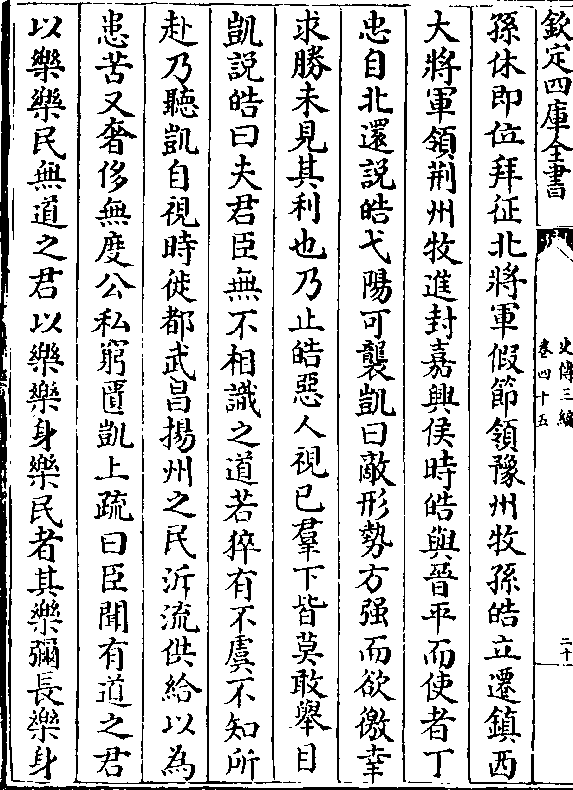 欽定四庫全書
史傳三編
卷四十五
二十一
孫休即位拜征北將軍假節領豫州牧孫皓立遷鎮西
大將軍領荆州牧進封嘉興侯時皓與晉平而使者丁
忠自北還説皓弋陽可襲凱曰敵形勢方强而欲徼幸
求勝未見其利也乃止皓惡人視已羣下皆莫敢舉目
凱説皓曰夫君臣無不相識之道若猝有不虞不知所
赴乃聽凱自視時徙都武昌揚州之民泝流供給以為
患苦又奢侈無度公私窮匱凱上疏曰臣聞有道之君
以樂樂民無道之君以樂樂身樂民者其樂彌長樂身